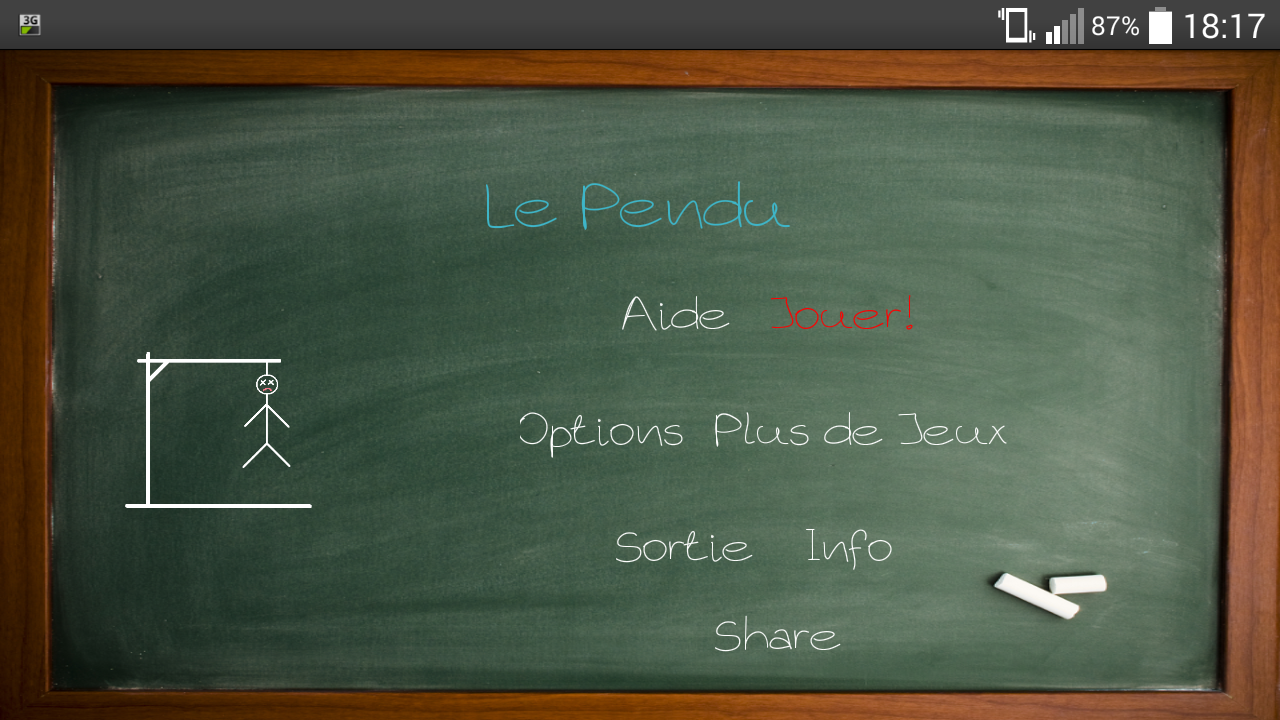 3G 87% 18:17
Le Pendu
Aide Jouer!
Options Plus de Jeux
Sortie Info
Share